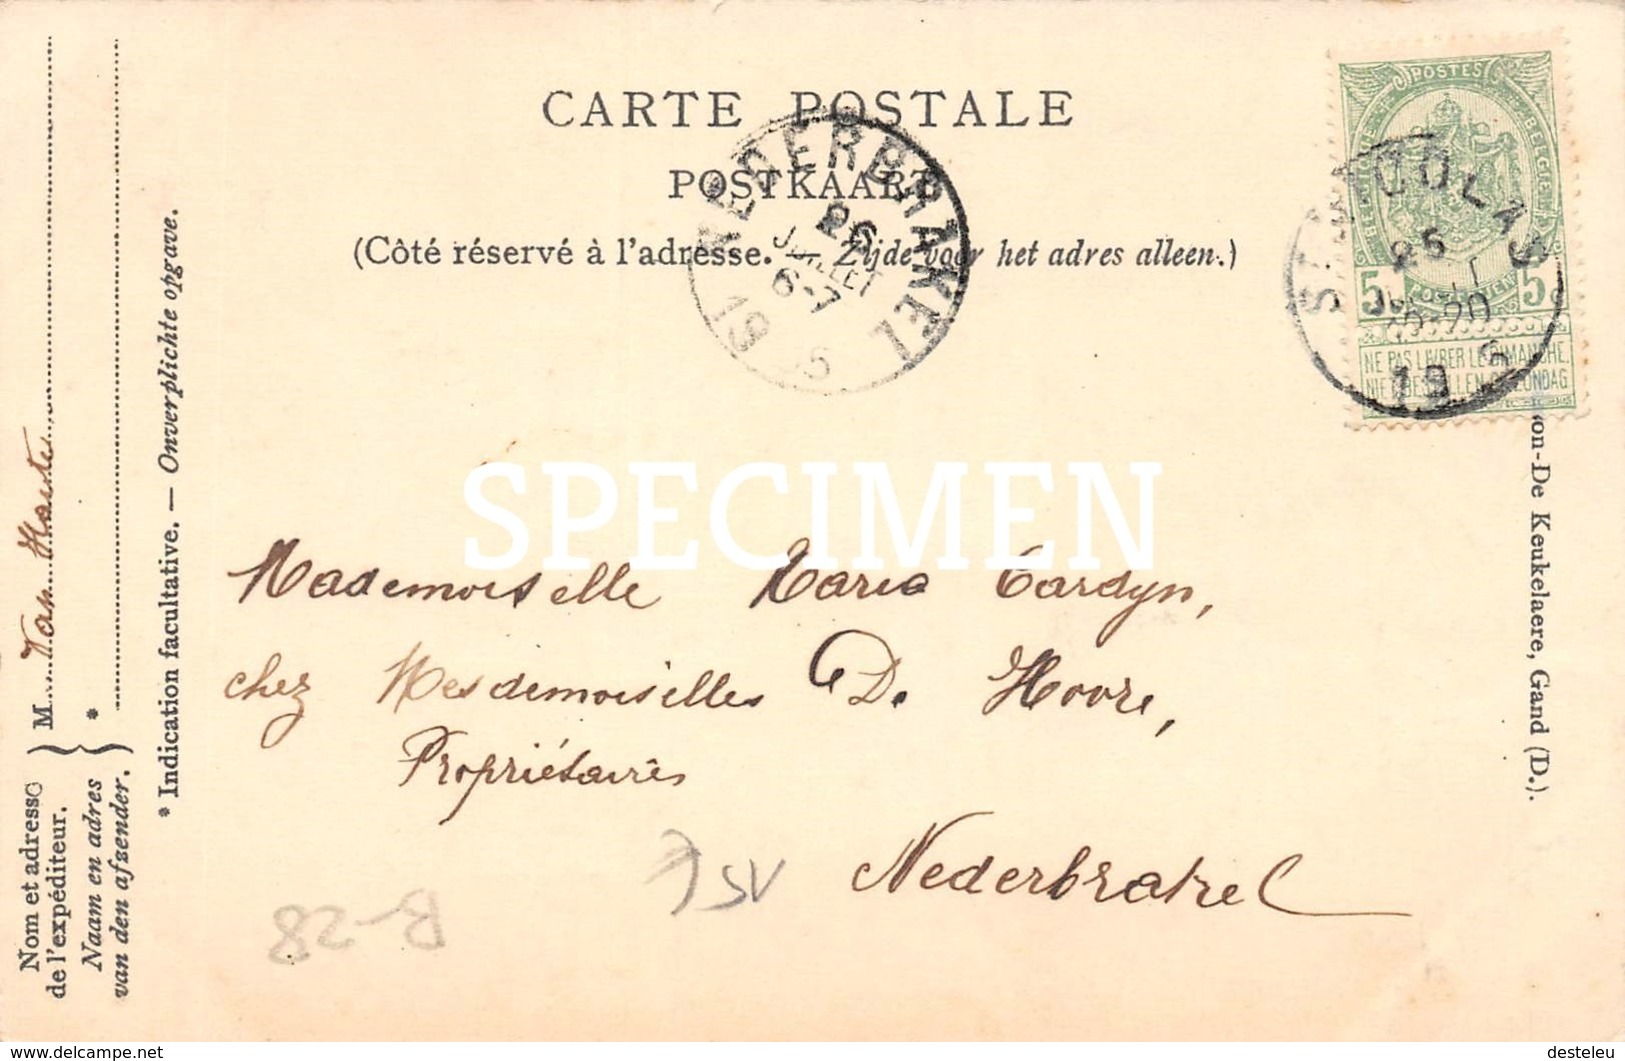 CARTE POSTALE
POSTKAART
(Côté réservé à l'adresse. - Zijde voor het adres alleen.)
NEDERBRAKEL
26
JUILLET
6-7
19 5
POSTES
5 POSTERIJEN 5
NE PAS LIVRER LE DIMANCHE.
NIET BESTELLEN OP ZONDAG
ST NICOLAS
25
19 6
SPECIMEN
Mademoiselle Maria Cardyn,
chez Mesdemoiselles De Hovre,
Propriétaires
Nederbrakel
B-28
Nom et adresse
de l'expéditeur.
Naam en adres
van den afzender.
M. Van Haute
*
* Indication facultative. — Onverplichte opgave.
on-De Keukelaere, Gand (D.).
delcampe.net
desteleu